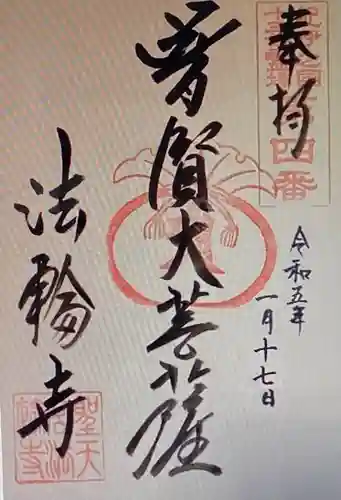 奉拝
四番
令和五年
一月十七日
普賢大菩薩
法輪寺
聖天